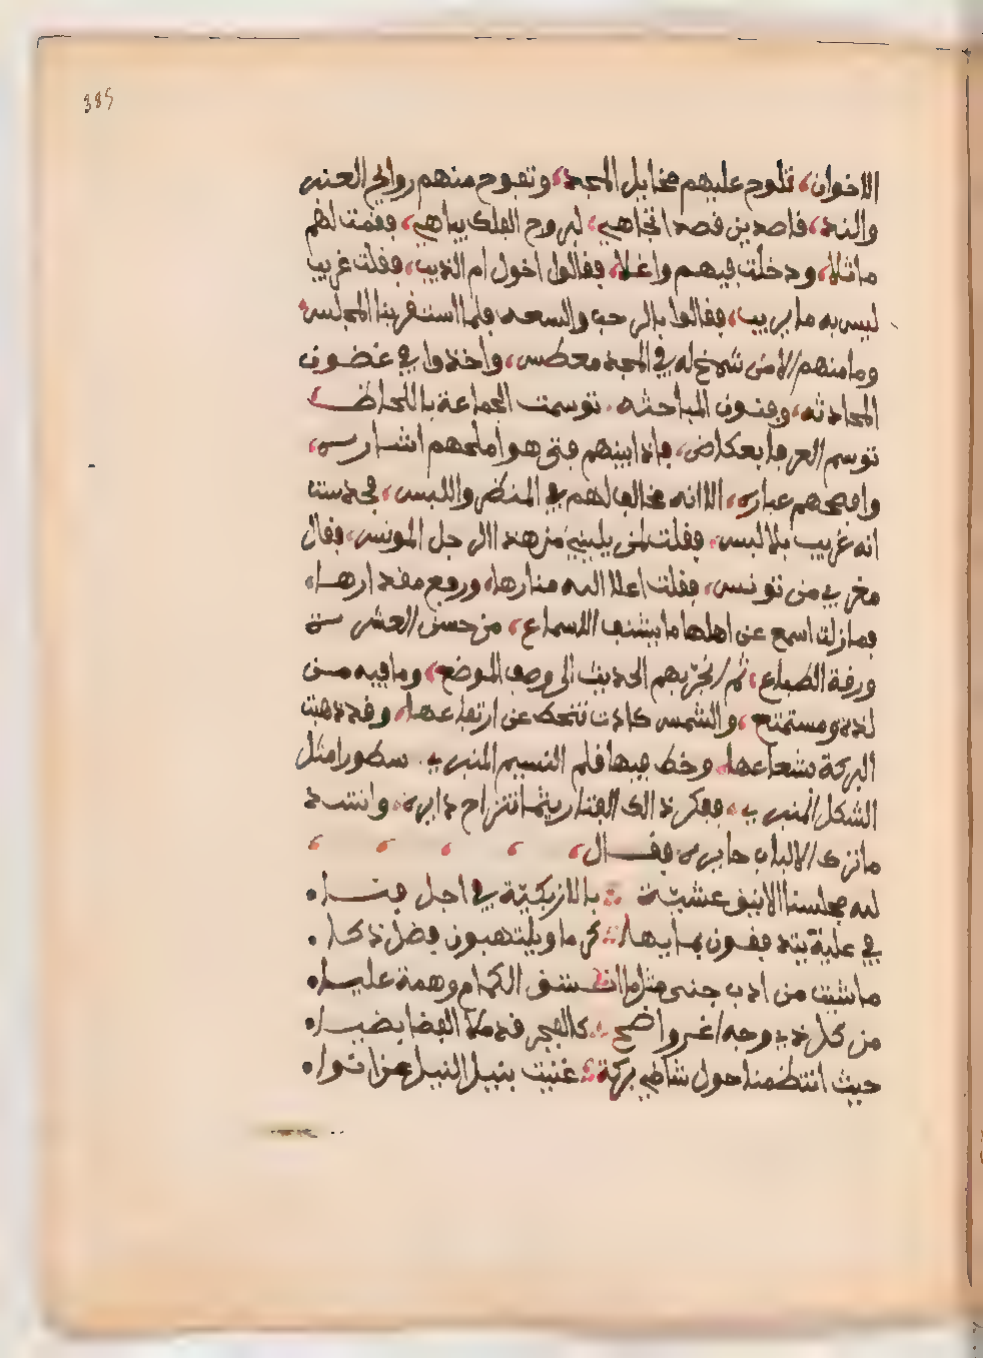 385
الاخوان، تلوح عليهم مخايل المجد، وتفوح منهم روايح العنبر
والند، قاصدين قصد اتجاهي، لبروج الفلك يباهي، فقمت لهم
ماثلا، ودخلت فيهم واغلا، فقالوا اخول ام الذيب، فقلت غريب
ليس به ما يريب، فقالوا بالرحب والسعه فلما استقر بنا المجلس
وما منهم الا من شمخ له في المجد معطس، واخذوا في غضون
المحادثه، وفنون المباحثه. توسمت الجماعة باللحاظ
توسم العرفا بعكاض، فاذا بينهم فتى هو املحهم اشاره،
وافصحهم عباره، الا انه مخالف لهم في المنظر واللبس، فحدست
انه غريب بلا لبس. فقلت لمن يليني من هذا الرجل المونس، فقال
مغربي من تونس، فقلت اعلا الله منارها، ورفع مقدارها،
فمازلت اسمع عن اهلها ما يشنف الاسماع، من حسن العشرة
ورقة الطباع، ثم انجر بهم الحديث الى وصف الموضع، وما فيه من
لذة ومستمتع، والشمس كادت تنحط عن ارتفاعها، وقد ذهبت
البركة بشعاعها، وخط فيها قلم النسيم المنبري. سطورا مثل
الشكل المنبري، ففكر ذالك الفتا ريثما انتزاح دايره، وانشد
ما ترى الالباب حايره فقال،
لله مجلسنا الانيق عشيّة بالازبكيّة في اجل فنا
في علية يتدفقون بهابها كرما ويلتهبون فضل ذكا
ما شيت من ادب جنى مثلما انشق الكمام وهمة عليا
من كل ذي وجه اغر واضح كالفجر قد ملا الفضا بضيا
حيث انتظمنا حول شاطي بركة غنيت بنيل النيل عن انوا